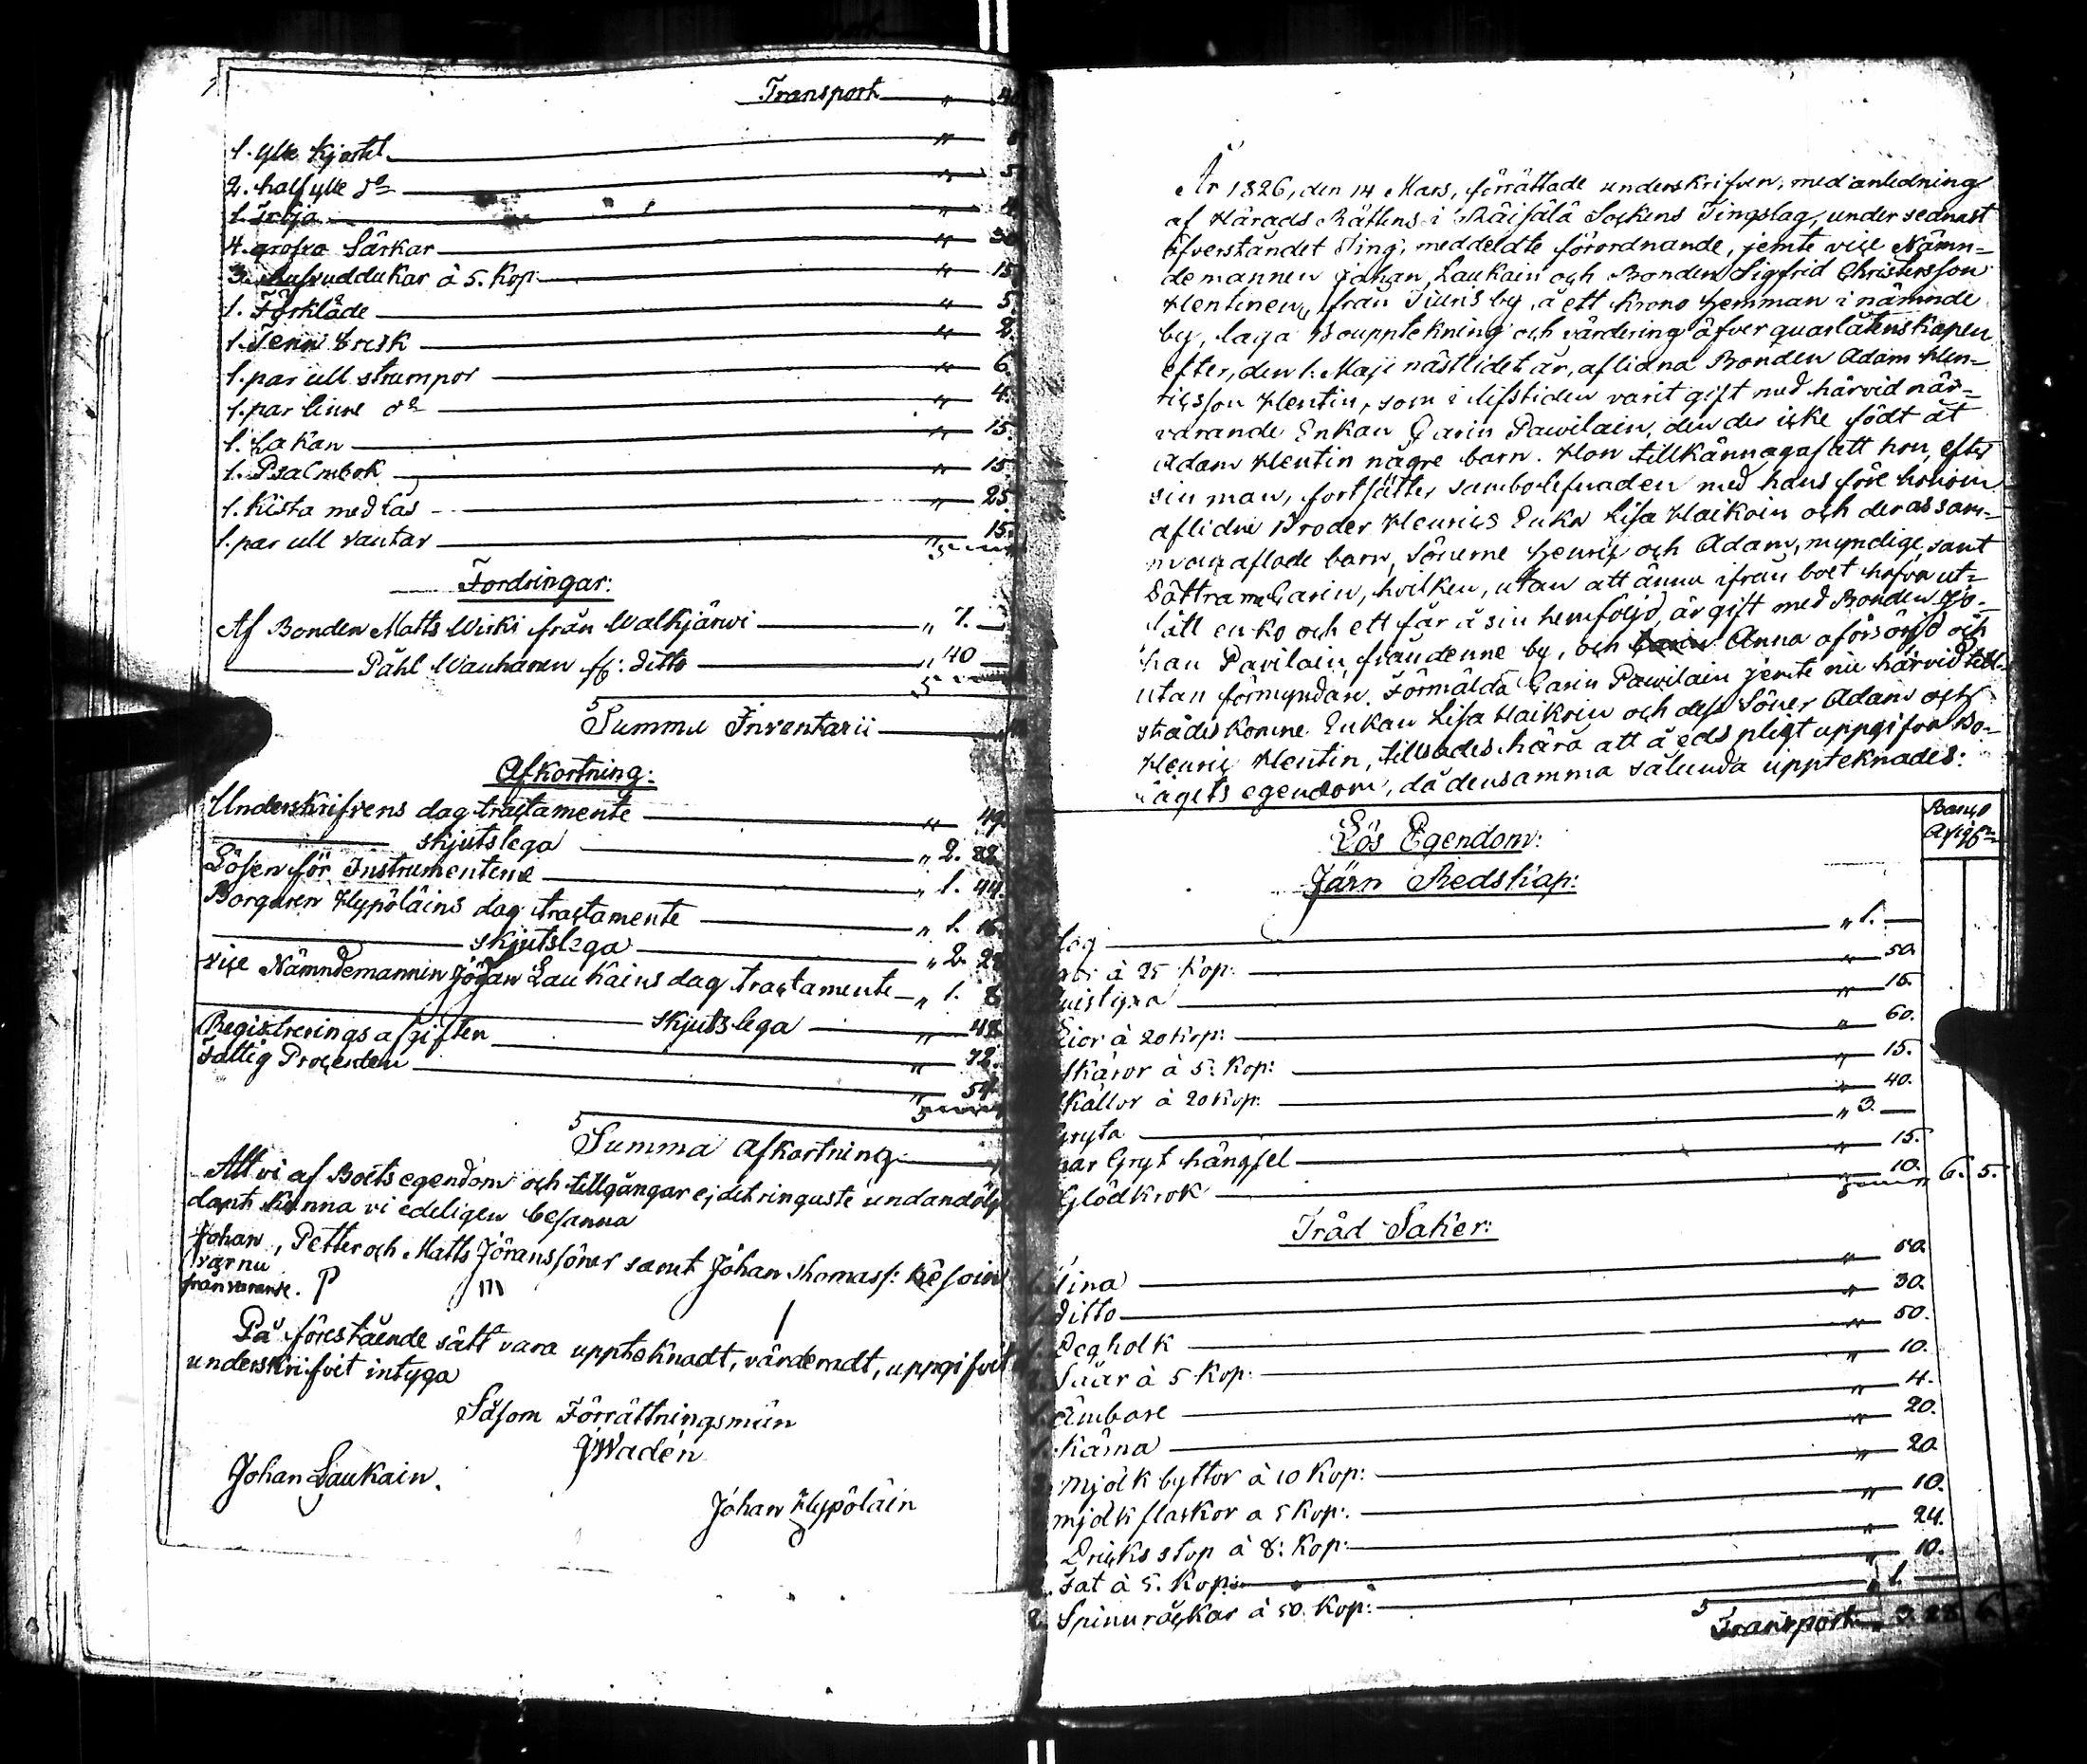 Transport „
1. ylle Kjortel „
2. halfylle do „ 5
1. Tröja „
4. grofva Särkar „ 30
3. hufvuddukar à 5. Kop: „ 15
1. Förkläde „ 5.
1. Tenn brisk „ 2.
1. par ull strumpor „ 6.
1. par linne do „ 4.
1. Lakan „ 15.
1. Psalmbok „ 15.
1. Kista med Lås „ 25.
1. par ull vantar „ 15.
Fordringar:
Af Bonden Matts Wirki från Walkjärvi „ 7. —
Påhl Wauhanen fr: ditto „ 40 —
Summa Inventarii
Afkortning:
Underskrifvens dag tractamente „ 49.
skjutslega „ 2. 82.
Lösen för Instrumentene „ 1. 44.
Borgaren Hypöläins dag tractamente „ 1. 16.
skjutslega „ 2.
vice Nämndemannen Johan Laukains dag tractamente „ 1. 8
skjutslega „ 48
Registrerings afgiften „ 72.
Fattig Procenten „ 54.
Summa Afkortning
Att vi af Boets egendom och tillgångar ej det ringaste undandölgt
kunna vi edeligen besanna
Johan, Petter och Matts Jöransöner samt Johan Thomasf:
var nu
frånvarande. P m
På förestående sätt vara upptecknadt, värderadt, uppgifvit
underskrifvit intyga
Såsom Förrättningsmän
J Wadén
Johan Laukain.
Johan Hypöläin
År 1826, den 14 Mars, förrättade underskrifven, med anledning
af Härads Rättens i Räisälä Sockens Tingslag, under sednast
öfverståndet Ting, meddeldte förordnande, jemte vice Nämn=
demannen Johan Laukain och Bonden Sigfrid Christersson
Hentinen, från Tiuris by, å ett Krono hemman i nämnde
by, laga Bouppteckning och värdering öfver quarlåtenskapen
efter, den 1. Maji nästlidet år, aflidna Bonden Adam Hen=
ricsson Hentin, som i lifstiden varit gift med härvid när=
varande Enkan Carin Pawilain, den der icke födt åt
Adam Hentin någre barn. Hon tillkännagaf att hon, efter
sin man, fortsätter sambolefnaden med hans före honom
aflidne Broder Henrics Enka Lisa Haikoin och deras sam=
man aflade barn, Sönerne Henric och Adam, myndige, samt
Döttrarne Carin, hvilken, utan att ännu ifrån boet hafva ut=
tått en ko och ett får å sin hemföljd, är gift med Bonden Jo=
han Pavilain, från denne by, och Anna oförsörjd och
utan förmyndare. Förmälda Carin Pawilain jemte nu härvid till=
städes komne Enkan Lisa Haikoin och dess Söner Adam och
Henric Hentin, tillsades håra att å eds pligt uppgifva Bo=
lagets egendom, då densamma sålunda upptecknades:
Lös Egendom:
Järn Redskap:
„ 1. —
à 25 Kop: „ 50.
„ 15.
à 20 Kop: „ 60.
skäror à 5. Kop: „ 15.
skällor à 20 Kop: „ 40.
Gryta „ 3. —
par Gryt hängsel „ 15.
Glödkrok „ 10. 6. 5.
Träd Saker:
1. Tina „ 50.
1. ditto „ 30.
1. Degholk „ 50.
Såår à 5 Kop: „ 10.
1. Ämbare „ 4.
1. Kärna „ 20.
Mjölk byttor à 10 Kop: „ 20
mjölk flaskor a 5 Kop: „ 10.
Dricks stop à 8: Kop: „ 24.
2. Fat à 5. Kop: „ 10.
2. Spinnråckar à 50. Kop: „ 1. —
Transport „ 3. 28 6. 5